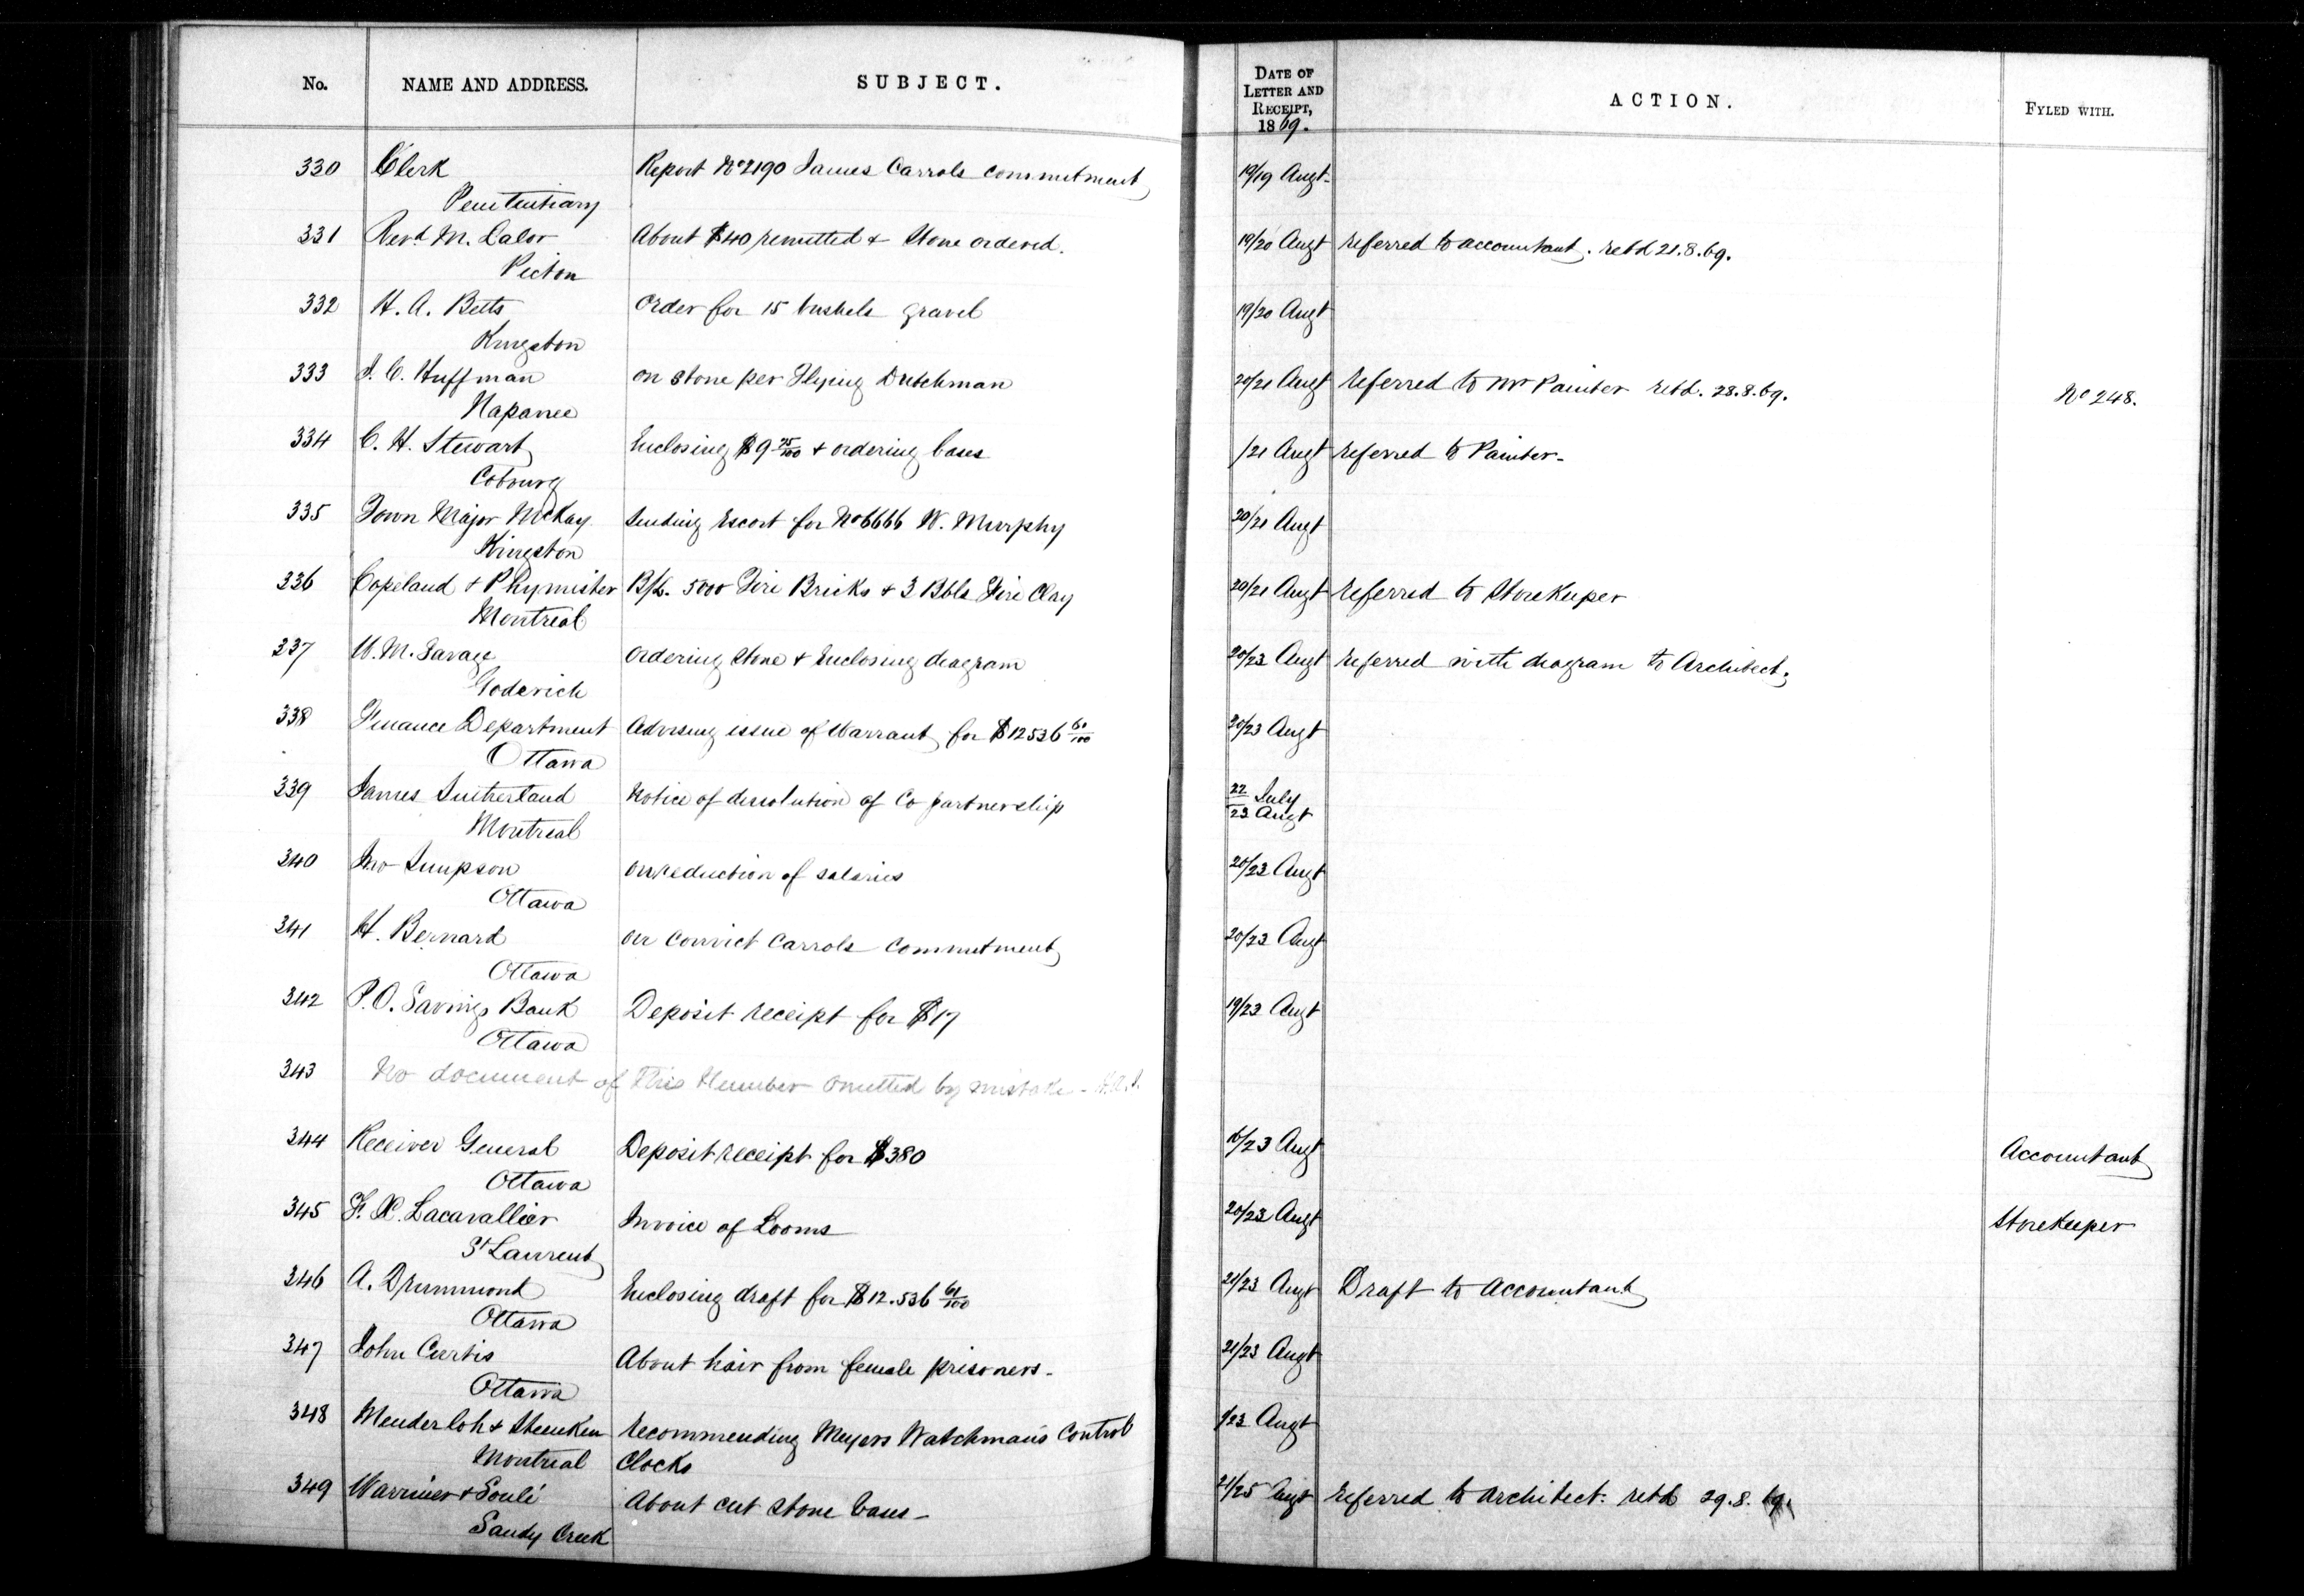 No. NAME AND ADDRESS. SUBJECT. DATE OF LETTER AND RECEIPT, 1869. ACTION. FYLED WITH.
330 Clerk Report No 2190 James Carrols commitment 19/19 Augt.
Penitentiary
331 Revd. M. Lalor About $40 remitted & Stone ordered. 19/20 Augt referred to accountant. retd 21.8.69.
Picton
332 H. A. Betts Order for 15 bushels gravel 19/20 Augt
Kingston
333 J. C. Huffman on stone per Flying Dutchman 20/21 Augt referred to Mr Painter retd. 28.8.69. No 248.
Napanee
334 C. H. Stewart Enclosing $9 75/100 & ordering bases /21 Augt referred to Painter-
Cobourg
335 Town Major McKay Sending Escort for No 6666 W. Murphy 20/21 Augt
Kingston
336 Copeland & Phymister B/L. 5000 Fire Bricks & 3 Bbls Fire Clay 20/21 Augt referred to Storekeeper
Montreal
337 W. M. Savage Ordering stone & Enclosing diagram 20/23 Augt referred with diagram to Architect.
Goderich
338 Finance Department Advising issue of Warrant for $12536 61/100 20/23 Augt
Ottawa
339 James Sutherland Notice of dissolution of Co partnership 22 July
Montreal 23 Augt
340 Jno Simpson on reduction of salaries 20/23 Augt
Ottawa
341 H. Bernard on convict Carrols commitment 20/23 Augt
Ottawa
342 P.O. Savings Bank Deposit receipt for $17 19/23 Augt
Ottawa
343 No document of this Number omitted by mistake -
344 Receiver General Deposit receipt for $380 /23 Augt Accountant
Ottawa
345 F. X. Lacavallier Invoice of Looms 20/23 Augt Storekeeper
St Laurent
346 A. Drummond Enclosing draft for $12.536 61/100 21/23 Augt Draft to Accountant
Ottawa
347 John Curtis About hair from female prisoners- 21/23 Augt
Ottawa
348 Menderloh & Steenken recommending Meyers Watchman's Control /23 Augt
Montreal Clocks
349 Warriner & Soulé About cut stone bases- 21/25 Augt referred to architect. retd 29.8.69.
Sandy Creek